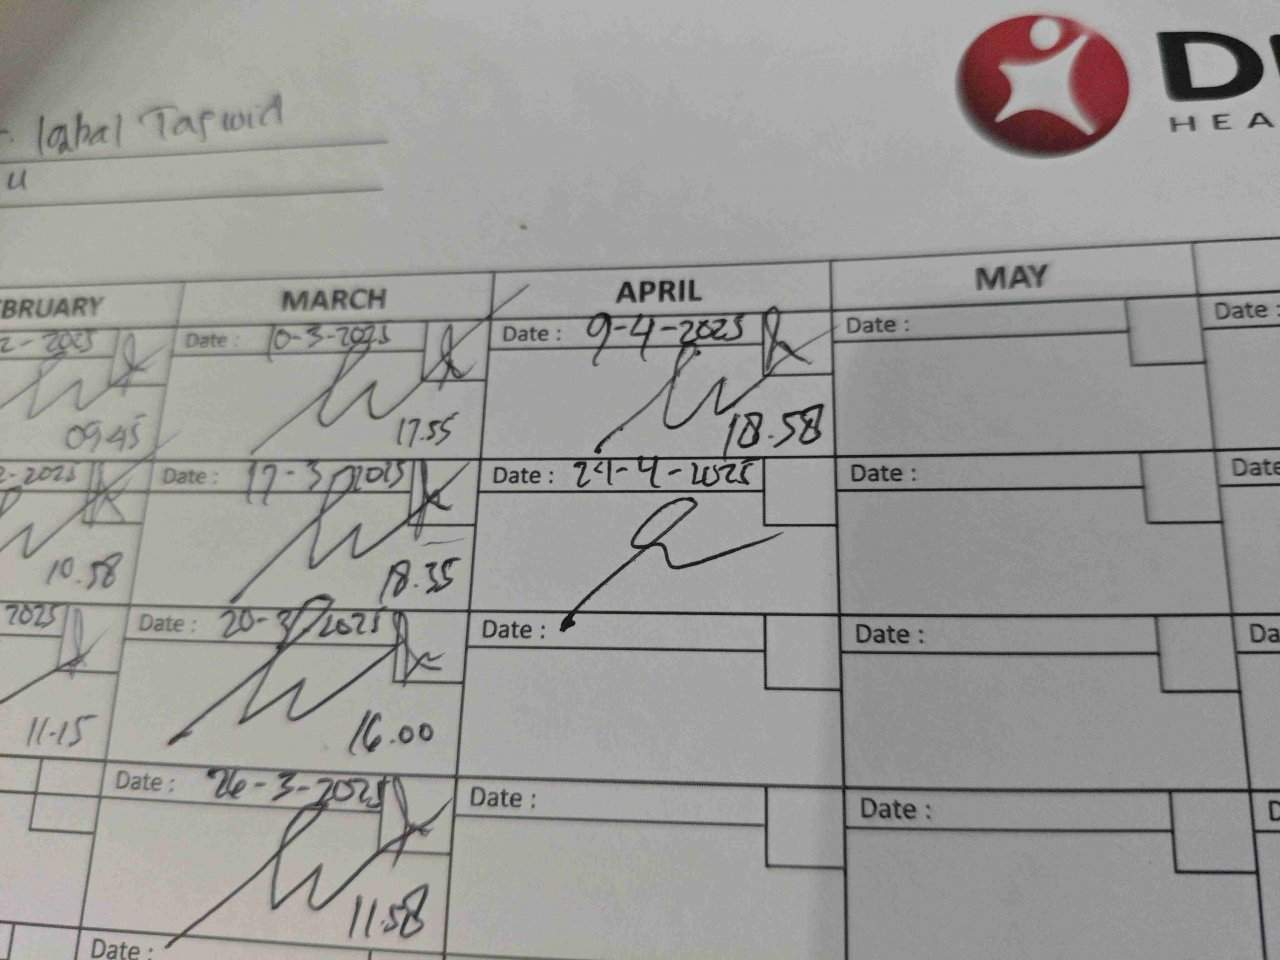 Iqbal Taswid
HEA
MARCH
APRIL
MAY
Date : 10-3-2025
Date : 9-4-2025
Date :
Date :
09.45
17.55
18.58
2-2025
Date : 17-3-2025
Date : 24-4-2025
Date :
Date
10.58
18.35
2025
Date : 20-3-2025
Date :
Date :
11.15
16.00
Date : 26-3-2025
Date :
Date :
11.58
Date :